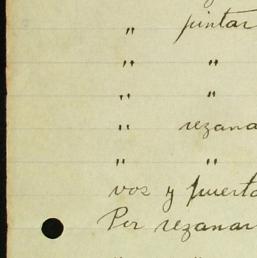 " juntar
" "
" "
" rezana
" "
voz y puerta
Por rezanar